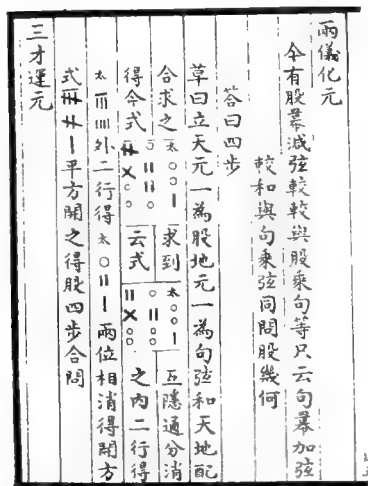 兩儀化元
今有股冪減弦較較與股乘句等只云句冪加弦
較和與句乘弦同問股幾何
答曰四步
草曰立天元一為股地元一為句弦和天地配
合求之 求到 互隱通分消
得今式 云式 之内二行得
太 外二行得 太 兩位相消得開方
式 平方開之得股四步合問
三才運元